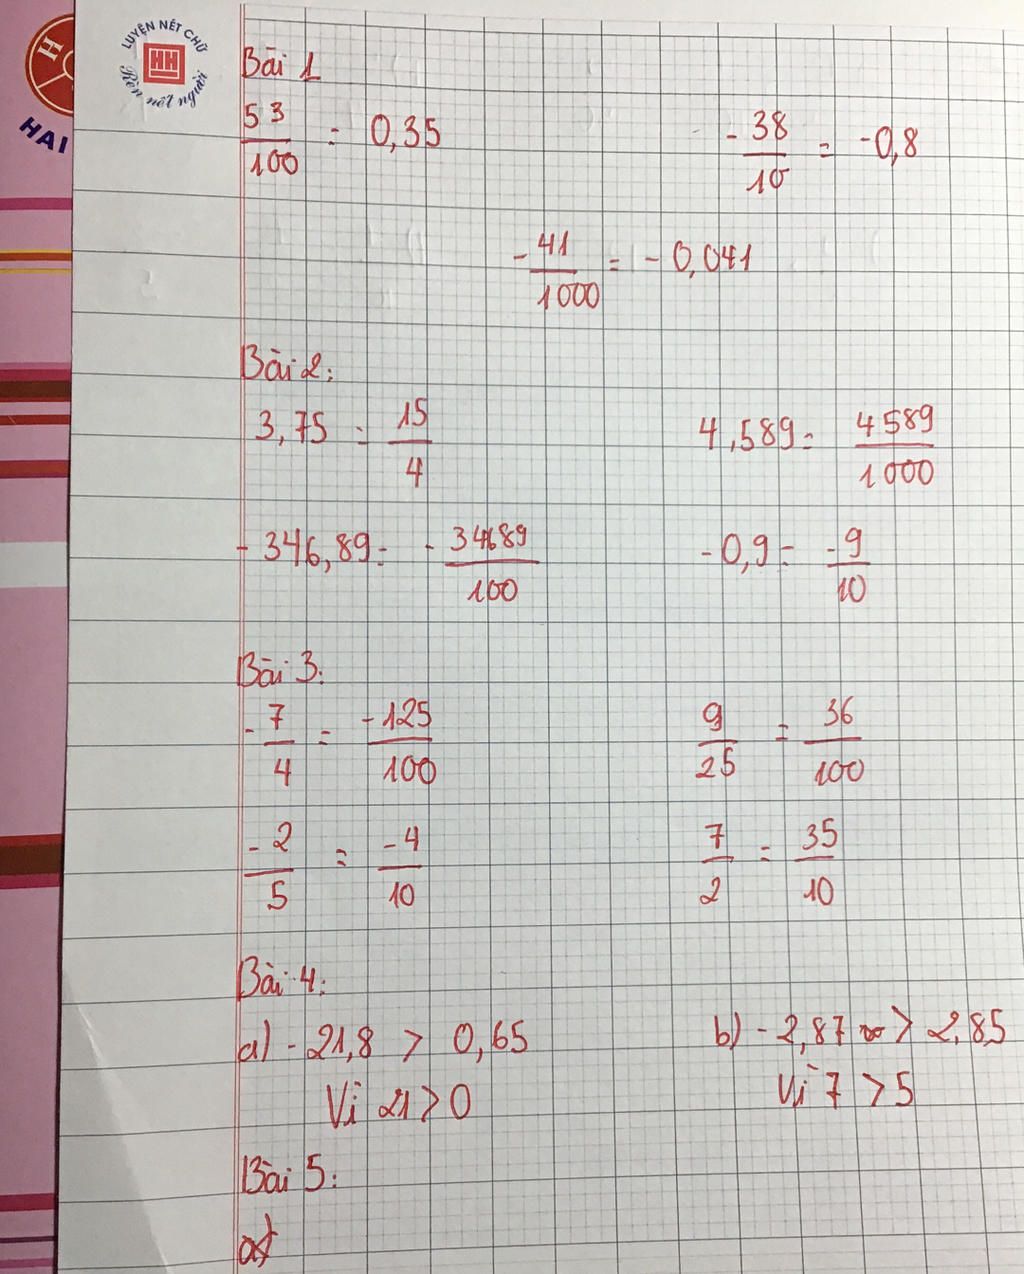 LUYỆN NÉT CHỮ
HH
Rèn nết người
HAI
Bài 1
53/100 = 0,35
-38/10 = -0,8
-41/1000 = -0,041
Bài 2:
3,75 = 15/4
4,589 = 4589/1000
-346,89 = -34689/100
-0,9 = -9/10
Bài 3:
-7/4 = -125/100
9/25 = 36/100
-2/5 = -4/10
7/2 = 35/10
Bài 4:
a) -21,8 > 0,65
b) -2,87 > 2,85
Vì 21 > 0
Vì 7 > 5
Bài 5:
a)